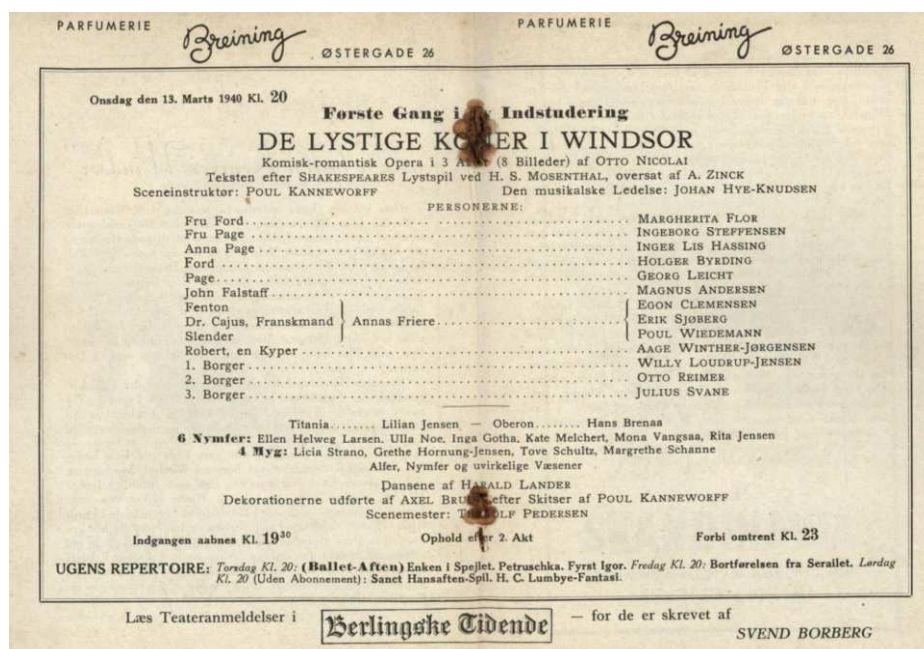 PARFUMERIE Breining ØSTERGADE 26 PARFUMERIE Breining ØSTERGADE 26
Onsdag den 13. Marts 1940 Kl. 20
Første Gang i Indstudering
DE LYSTIGE KONER I WINDSOR
Komisk-romantisk Opera i 3 (8 Billeder) af OTTO NICOLAI
Teksten efter SHAKESPEARES Lystspil ved H. S. MOSENTHAL, oversat af A. ZINCK
Sceneinstruktør: POUL KANNEWORFF Den musikalske Ledelse: JOHAN HYE-KNUDSEN
PERSONERNE:
Fru Ford MARGHERITA FLOR
Fru Page INGEBORG STEFFENSEN
Anna Page INGER LIS HASSING
Ford HOLGER BYRDING
Page GEORG LEICHT
John Falstaff MAGNUS ANDERSEN
Fenton EGON CLEMENSEN
Dr. Cajus, Franskmand Annas Friere ERIK SJØBERG
Slender POUL WIEDEMANN
Robert, en Kyper AAGE WINTHER-JØRGENSEN
1. Borger WILLY LOUDRUP-JENSEN
2. Borger OTTO REIMER
3. Borger JULIUS SVANE
Titania........ Lilian Jensen — Oberon........ Hans Brenaa
6 Nymfer: Ellen Helweg Larsen, Ulla Noe, Inga Gotha, Kate Melchert, Mona Vangsaa, Rita Jensen
4 Myg: Licia Strano, Grethe Hornung-Jensen, Tove Schultz, Margrethe Schanne
Alfer, Nymfer og uvirkelige Væsener
Dansene af HARALD LANDER
Dekorationerne udførte af AXEL efter Skitser af POUL KANNEWORFF
Scenemester: PEDERSEN
Indgangen aabnes Kl. 19³⁰ Ophold efter 2. Akt Forbi omtrent Kl. 23
UGENS REPERTOIRE: Torsdag Kl. 20: (Ballet-Aften) Enken i Spejlet. Petruschka. Fyrst Igor. Fredag Kl. 20: Bortførelsen fra Serailet. Lørdag
Kl. 20 (Uden Abonnement): Sanct Hansaften-Spil. H. C. Lumbye-Fantasi.
Læs Teateranmeldelser i Berlingske Tidende — for de er skrevet af
SVEND BORBERG